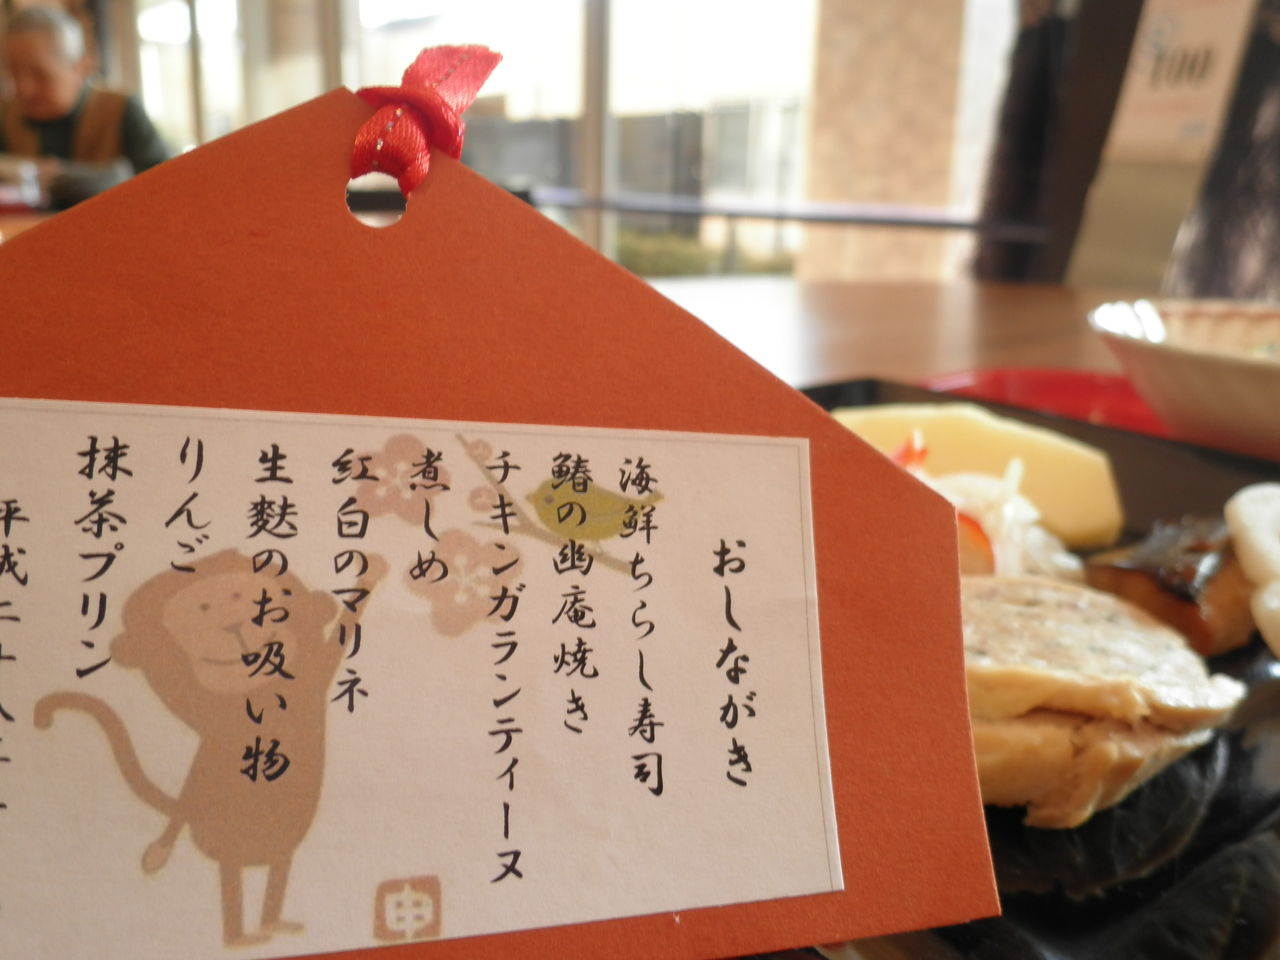 おしながき
海鮮ちらし寿司
鰆の幽庵焼き
チキンガランティーヌ
煮しめ
紅白のマリネ
生麩のお吸い物
りんご
抹茶プリン
平成二十八年一
申
100